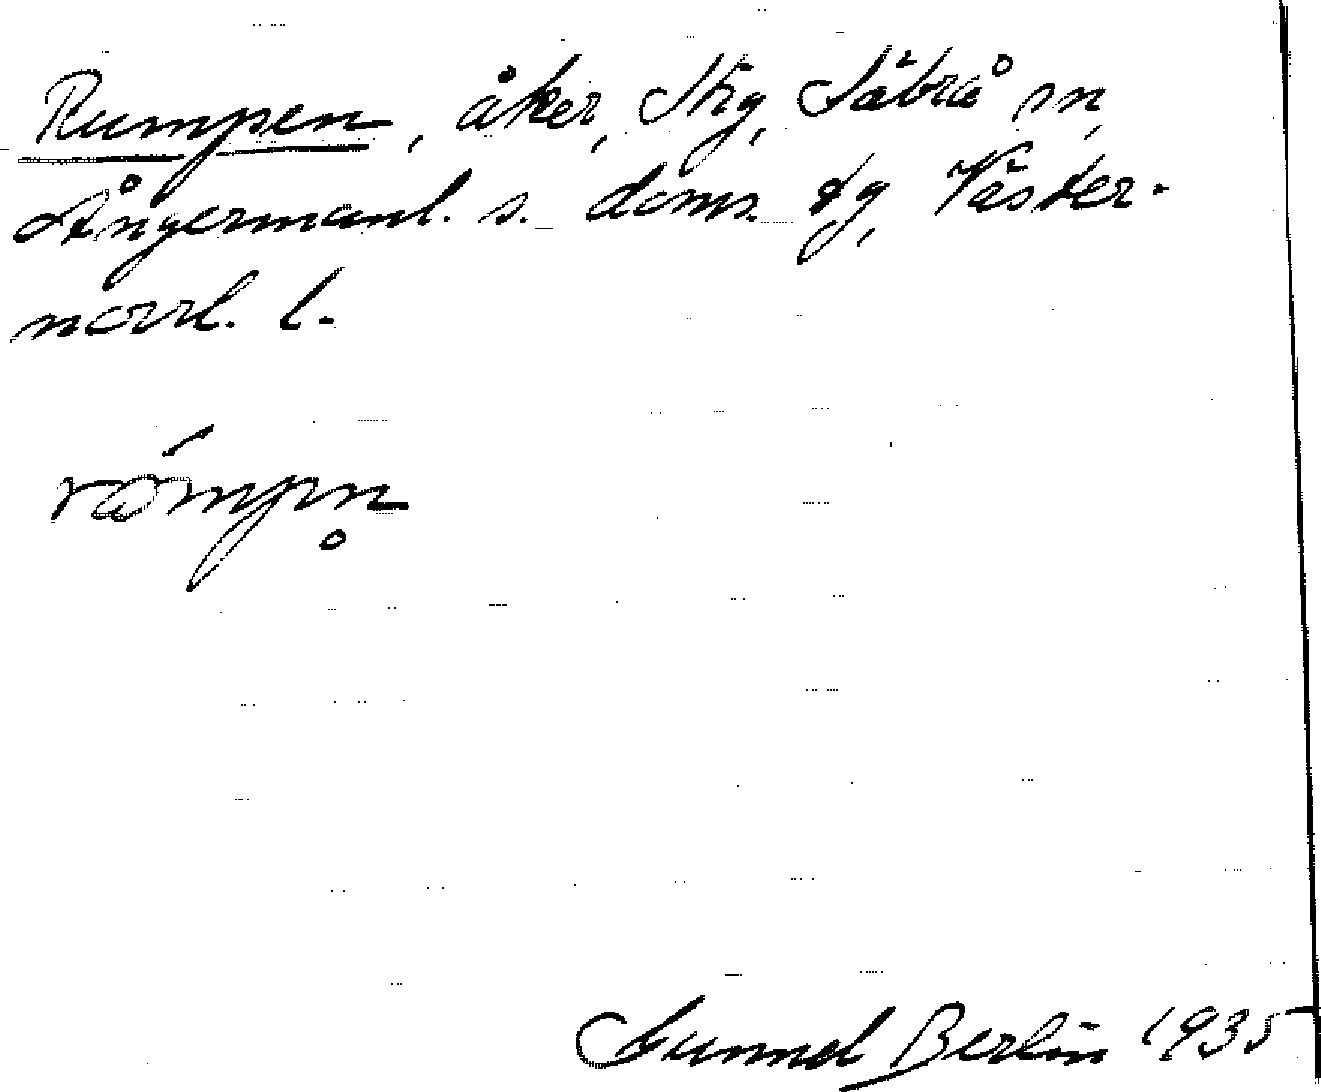 Rumpen, åker, Stig, Säbrå sn,
Ångermanl. s. doms. tg, Väster-
norrl. l.
römpn̥
Gunnel Berlin 1935